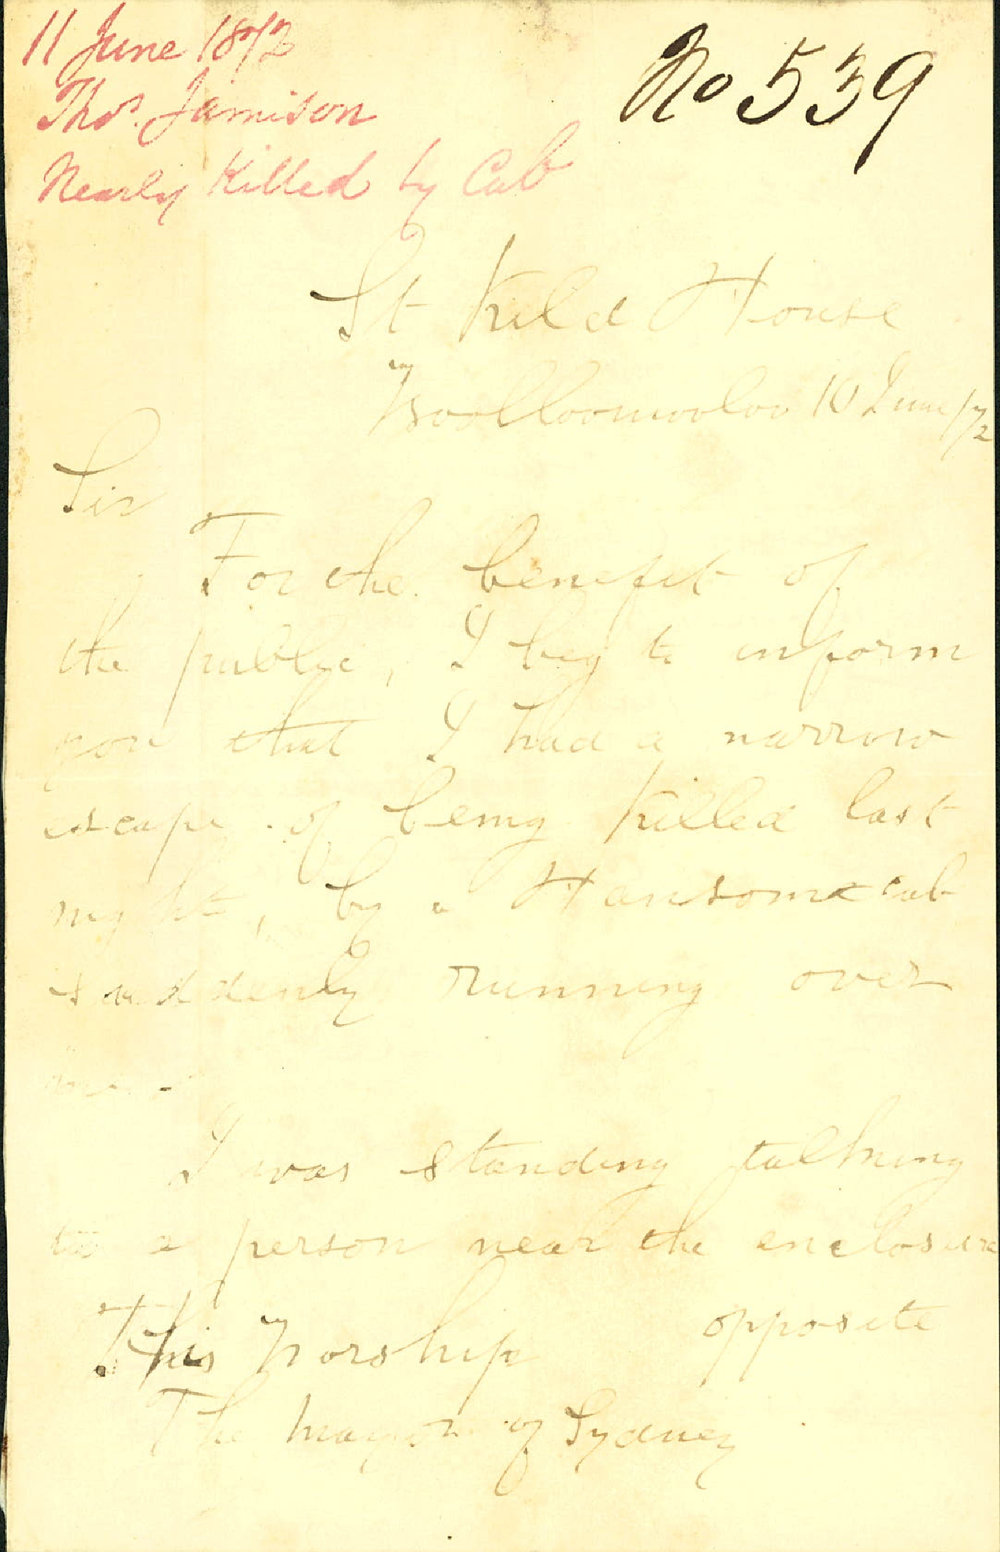 11 June 1872
Thos. Jamison
Nearly Killed by Cab
No 539
St Kild House
Woolloomooloo 10 June /72
Sir
For the benefit of
the public, I beg to inform
you that I had a narrow
escape of being killed last
night, by a Hansome cab
suddenly running over
me.
I was standing talking
to a person near the enclosure
opposite
His Worship
The Mayor of Sydney